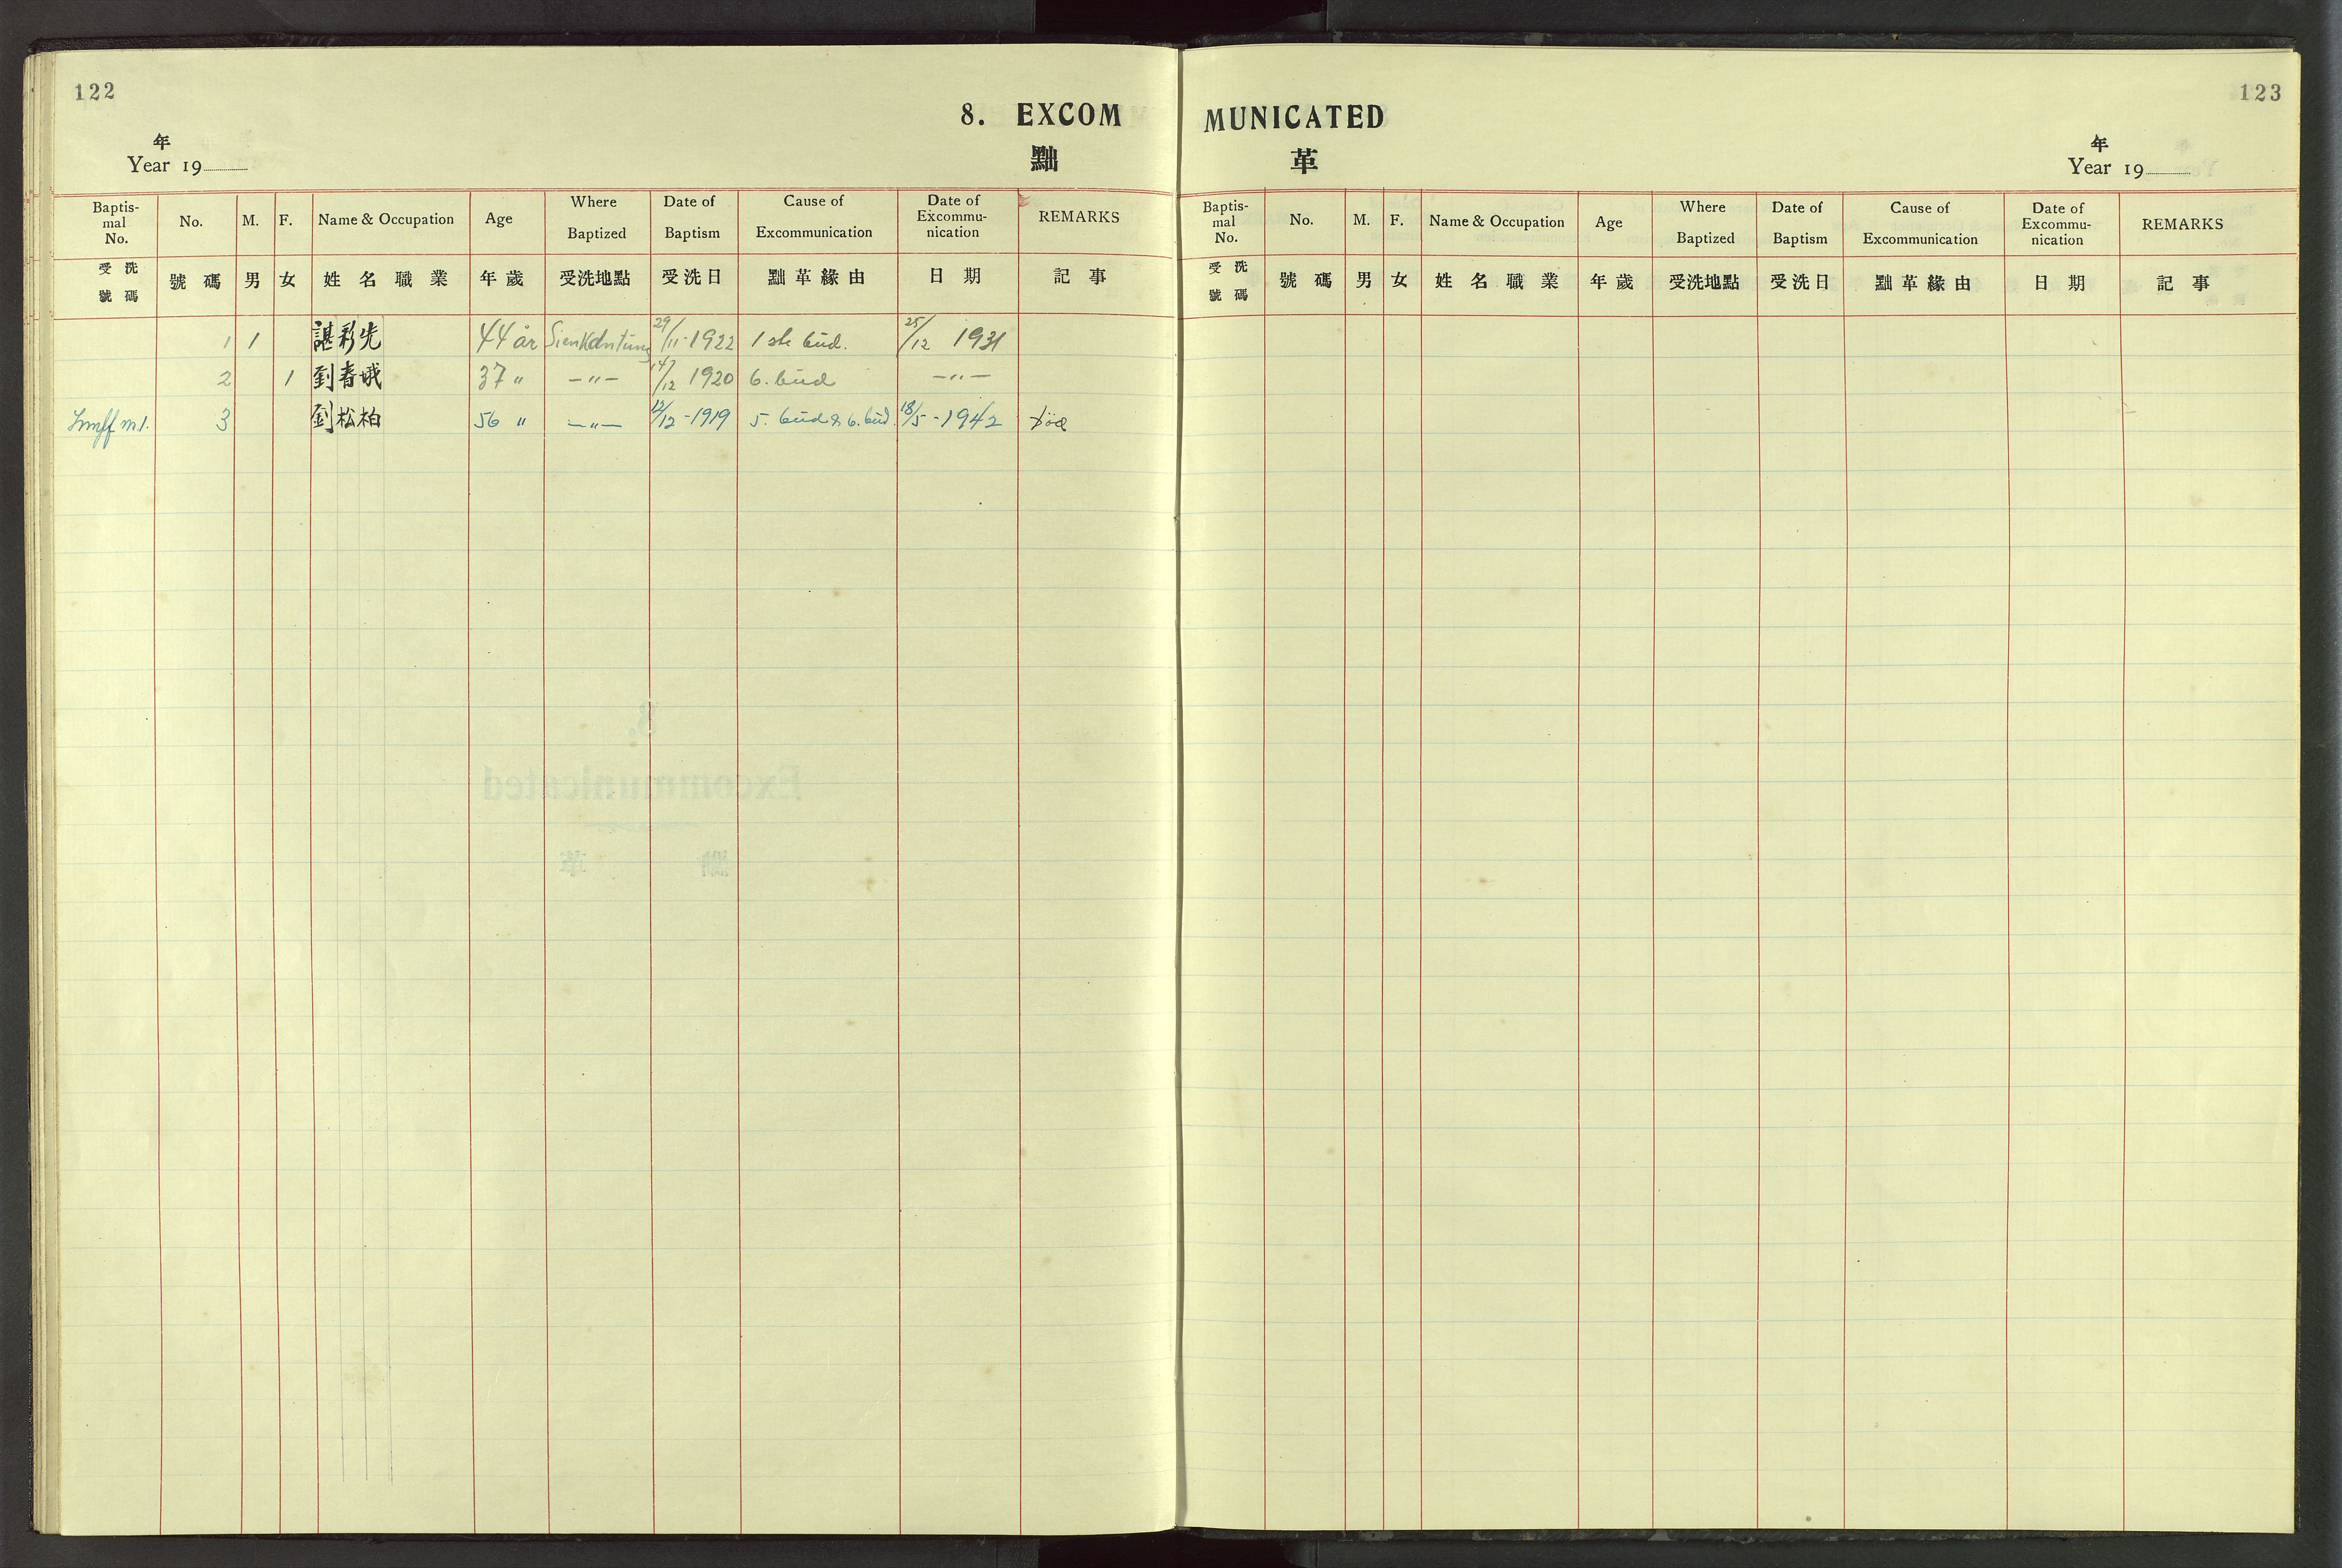 122
8. EXCOM
黜
年
Year 19
Baptis-mal No. No. M. F. Name & Occupation Age Where Baptized Date of Baptism Cause of Excommunication Date of Excommu-nication REMARKS
受洗號碼 號碼 男 女 姓名職業 年歲 受洗地點 受洗日 黜革緣由 日期 記事
1 1 諶彩先 44 år Sienkantung 29/11-1922 1ste bud. 25/12 1931
2 1 劉春娥 37 " -"- 14/12 1920 6. bud -"-
3 劉松柏 56 " -"- 12/12-1919 5. bud & 6. bud. 18/5-1942
123
MUNICATED
革
年
Year 19
Baptis-mal No. No. M. F. Name & Occupation Age Where Baptized Date of Baptism Cause of Excommunication Date of Excommu-nication REMARKS
受洗號碼 號碼 男 女 姓名職業 年歲 受洗地點 受洗日 黜革緣由 日期 記事